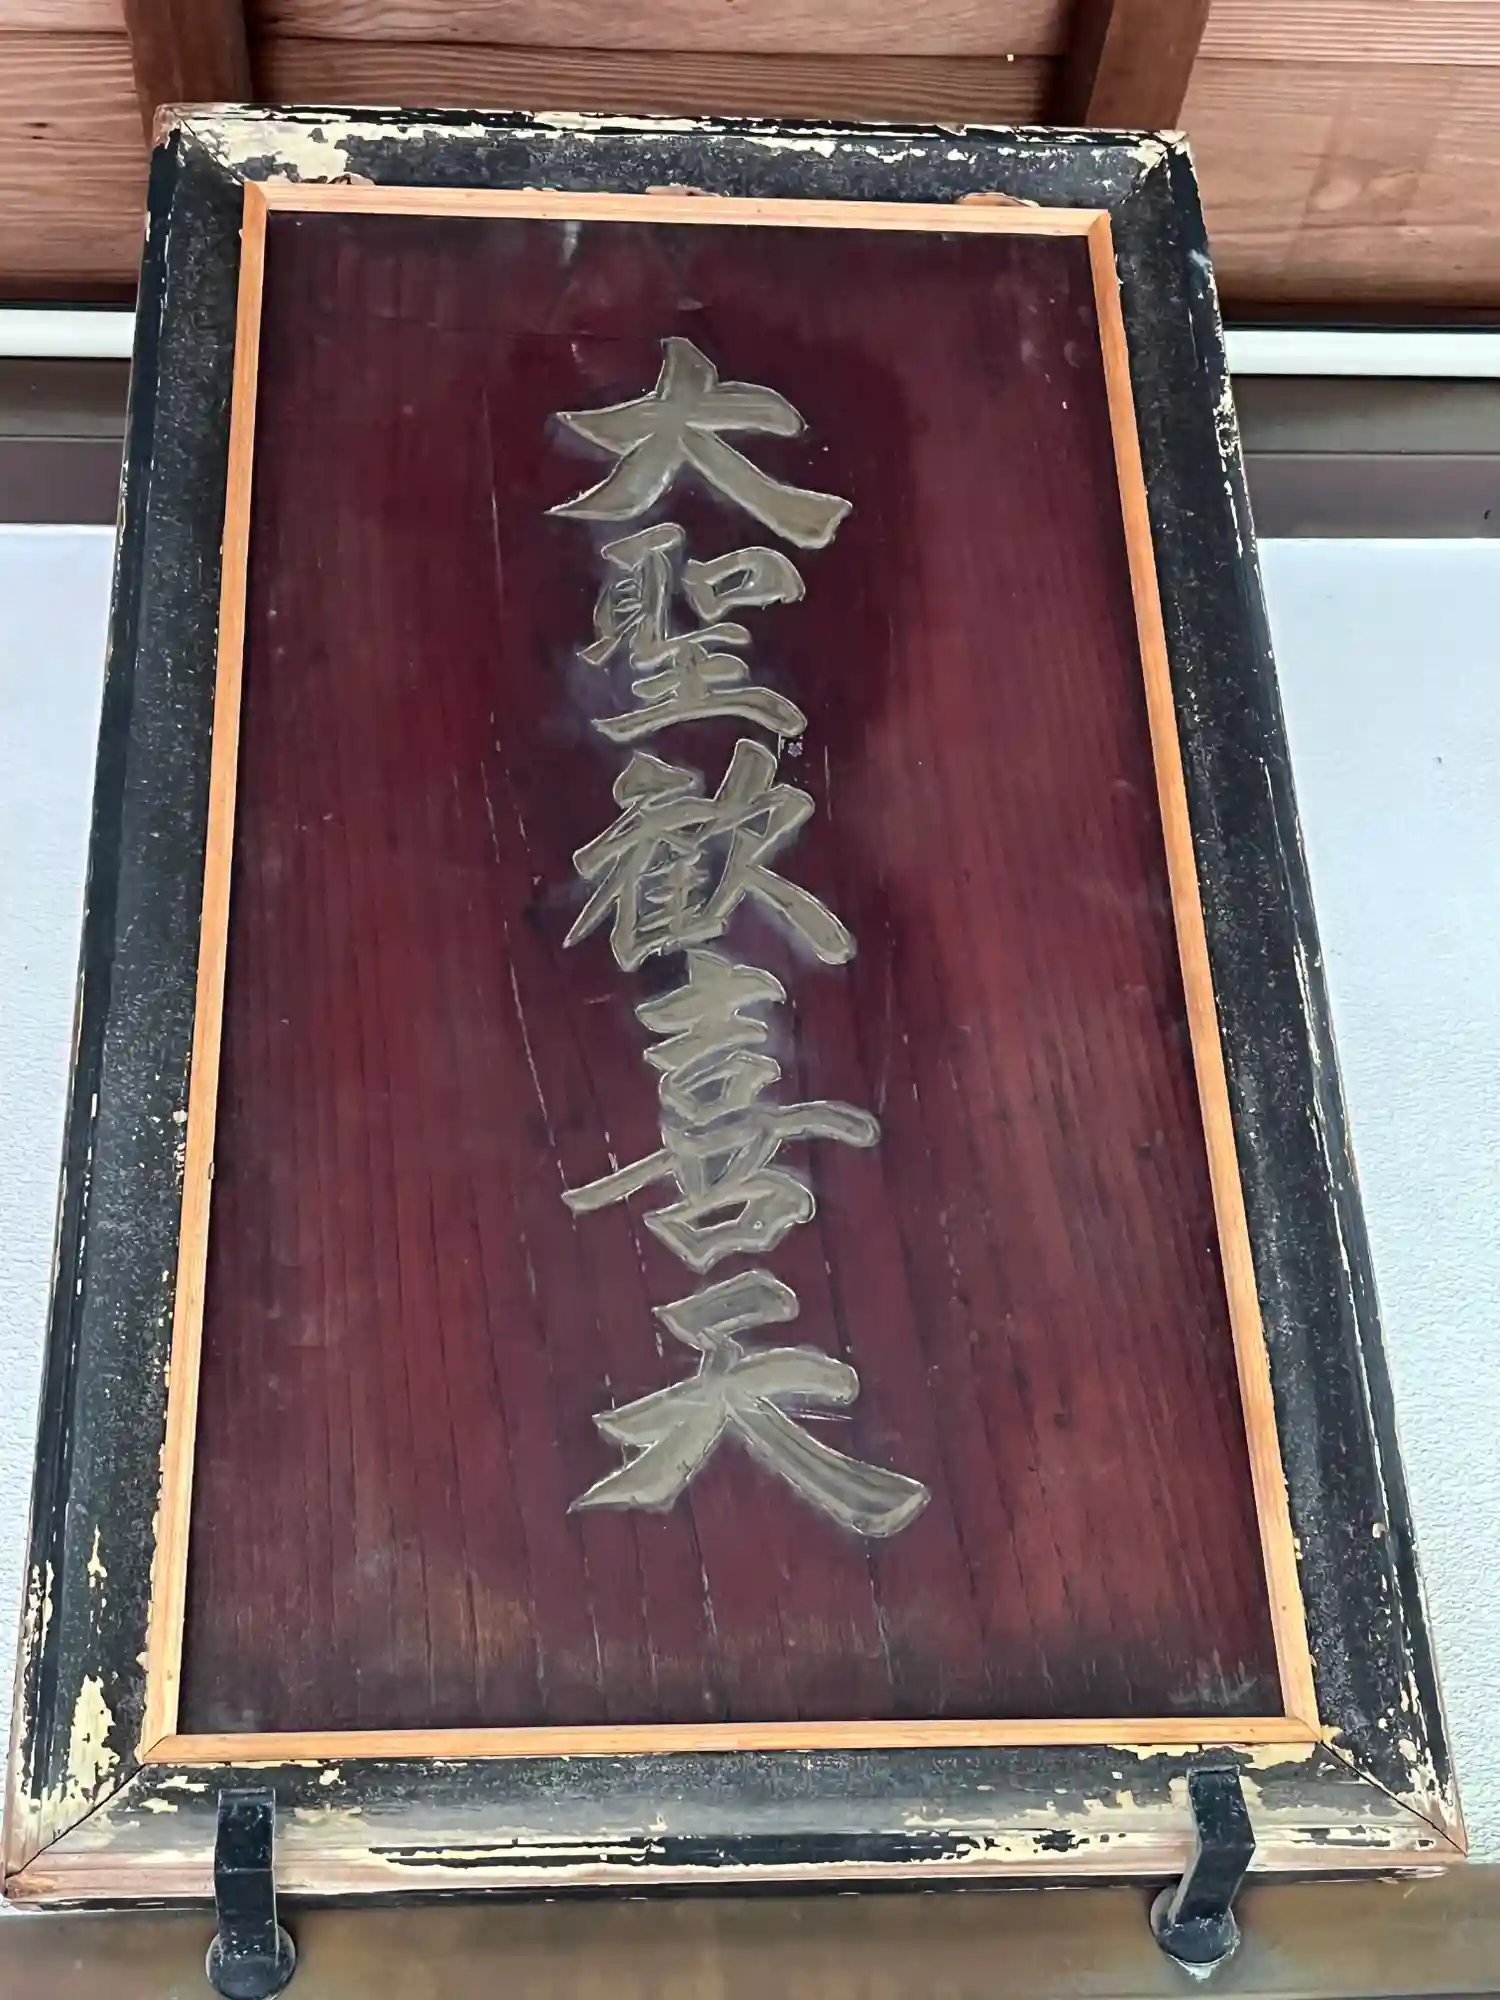 大聖歓喜天